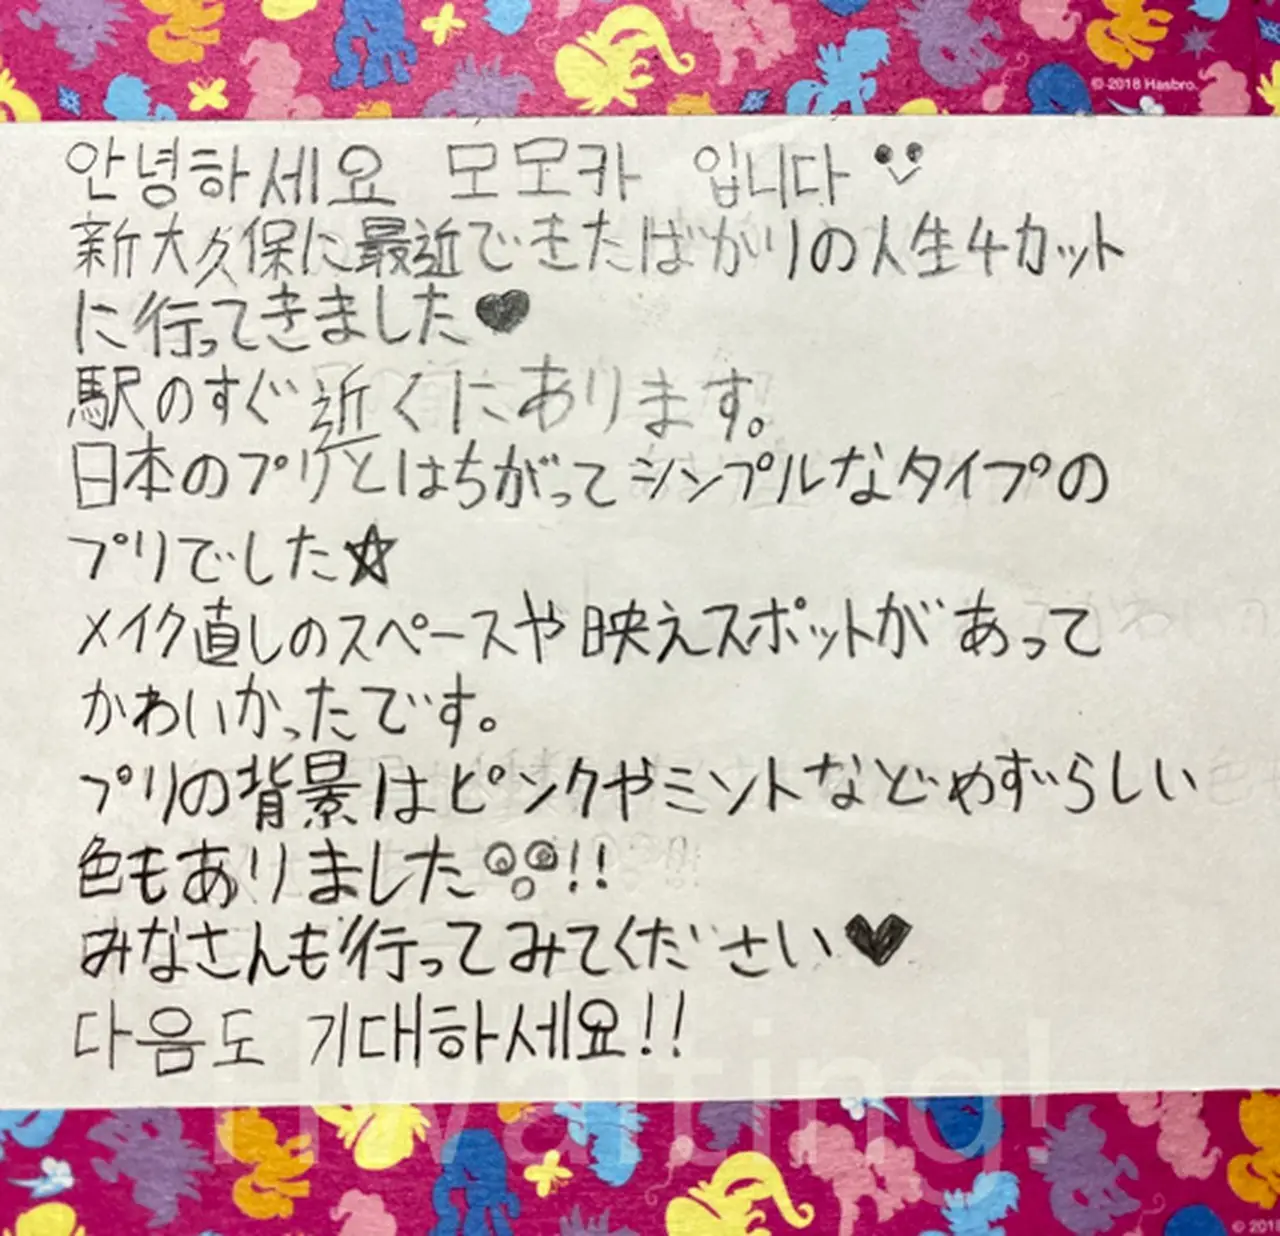 © 2018 Hasbro.
안녕하세요 모모카 입니다
新大久保に最近できたばかりの人生4カット
に行ってきました♥
駅のすぐ近くにあります。
日本のプリとはちがってシンプルなタイプの
プリでした☆
メイク直しのスペースや映えスポットがあって
かわいかったです。
プリの背景はピンクやミントなどめずらしい
色もありました!!
みなさんも行ってみてください♥
다음도 기대하세요!!
Hwaiting!
© 2018